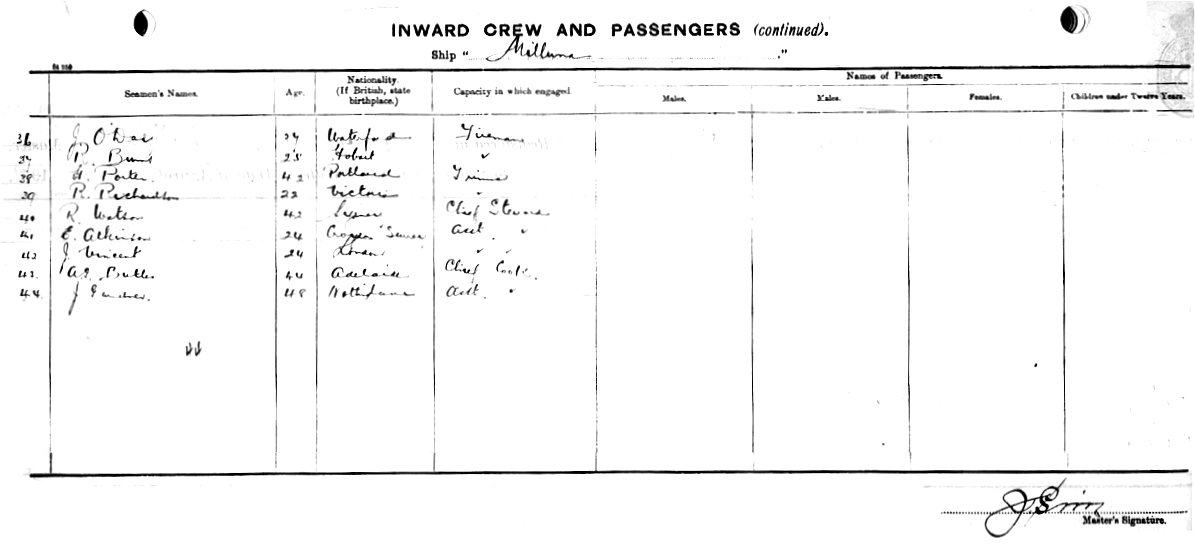 INWARD CREW AND PASSENGERS (continued).
Ship "Milluna"
Seamen's Names. Age. Nationality. (If British, state birthplace.) Capacity in which engaged Names of Passengers.
Males. Males. Females. Children under Twelve Years.
36 J. 27 Waterford Fireman
37 Burns 25 Hobart "
38 Porter 42 Portland
39 R. Richardson 22 Victoria "
40 R. Watson 42 Chief Steward
41 E. Atkinson 24 Asst "
42 J. Vincent 24 " "
43 Butler 44 Adelaide Chief Cook
44 J 48 Asst "
Master's Signature.